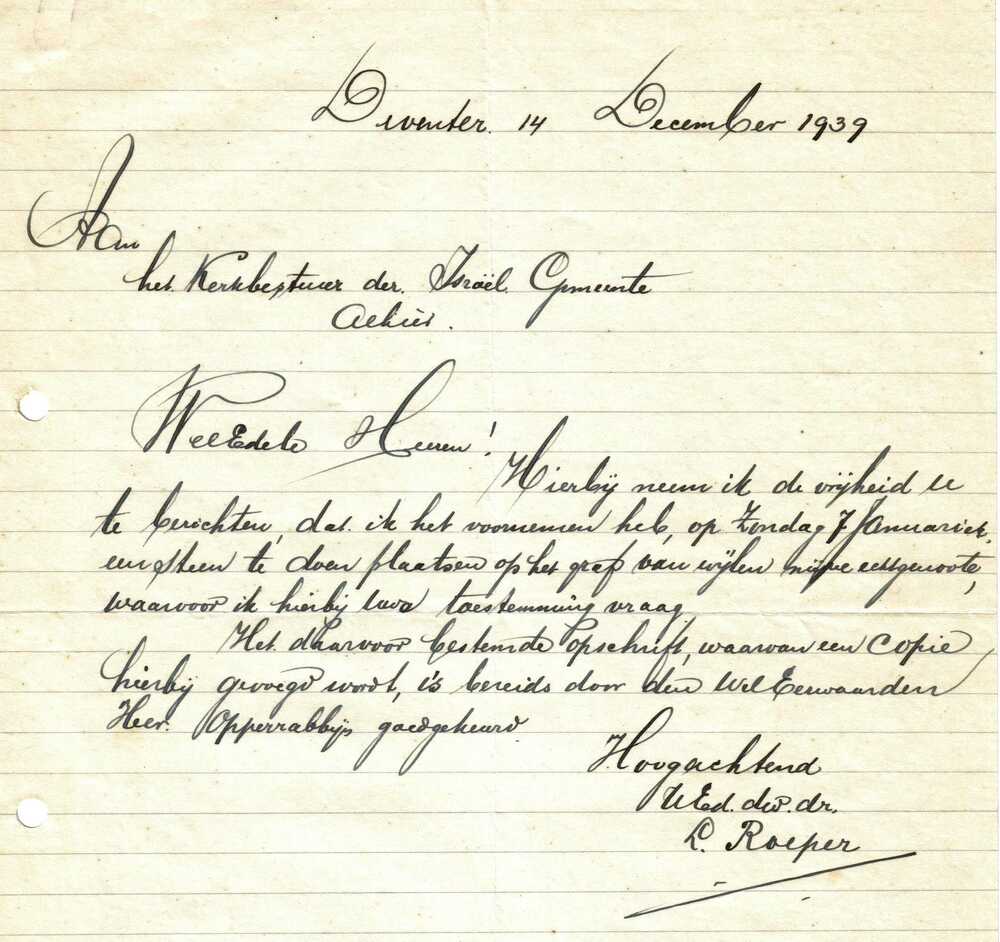 Deventer. 14 December 1939
Aan
het. Kerkbestuur der. Israël. Gemeente
Alhier.
WelEdele Heeren!
Hierbij neem ik de vrijheid U
te berichten, dat ik het voornemen heb, op Zondag 7 Januari e.k.
een steen te doen plaatsen op het graf van wijlen mijne echtgenoote,
waarvoor ik hierbij uwe toestemming vraag.
Het daarvoor bestemde opschrift, waarvan een copie
hierbij gevoegd wordt, is bereids door den WelEerwaarden
Heer. Opperrabbijn goedgekeurd.
Hoogachtend
UEd. dw. dr.
L. Roeper